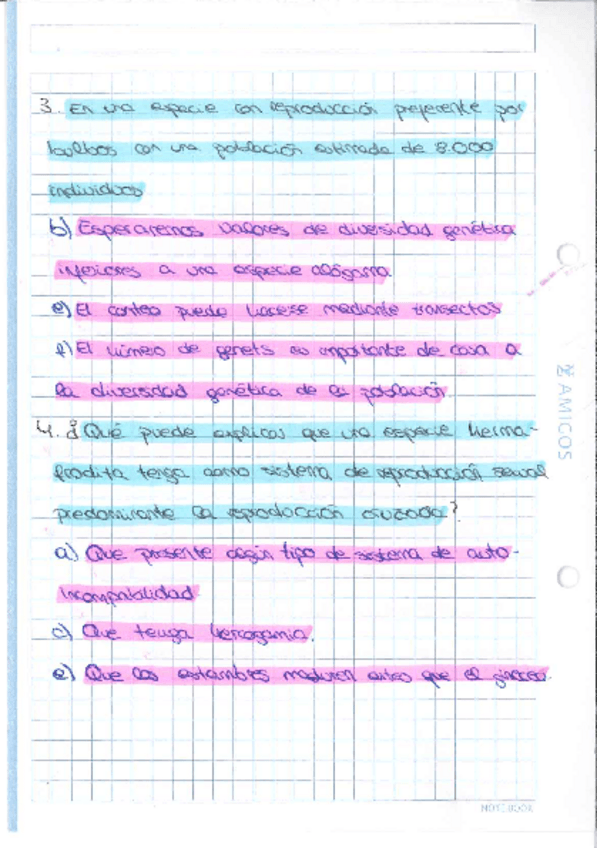 3. En una especie con reproducción preferente por
bulbos con una población estimada de 8.000
individuos
b) Esperaremos valores de diversidad genética
inferiores a una especie alógama.
e) El conteo puede hacerse mediante transectos
f) El número de genets es importante de cara a
la diversidad genética de la población.
4. ¿Qué puede explicar que una especie herma-
frodita tenga como sistema de reproducción sexual
predominante la reproducción cruzada?
a) Que presente algún tipo de sistema de auto-
incompatibilidad
c) Que tenga hercogamia.
e) Que los estambres maduren antes que el gineceo.
AMICOS
NOTEBOOK